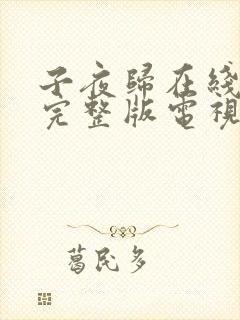 子夜歸在綫
完整版電視
葛民多